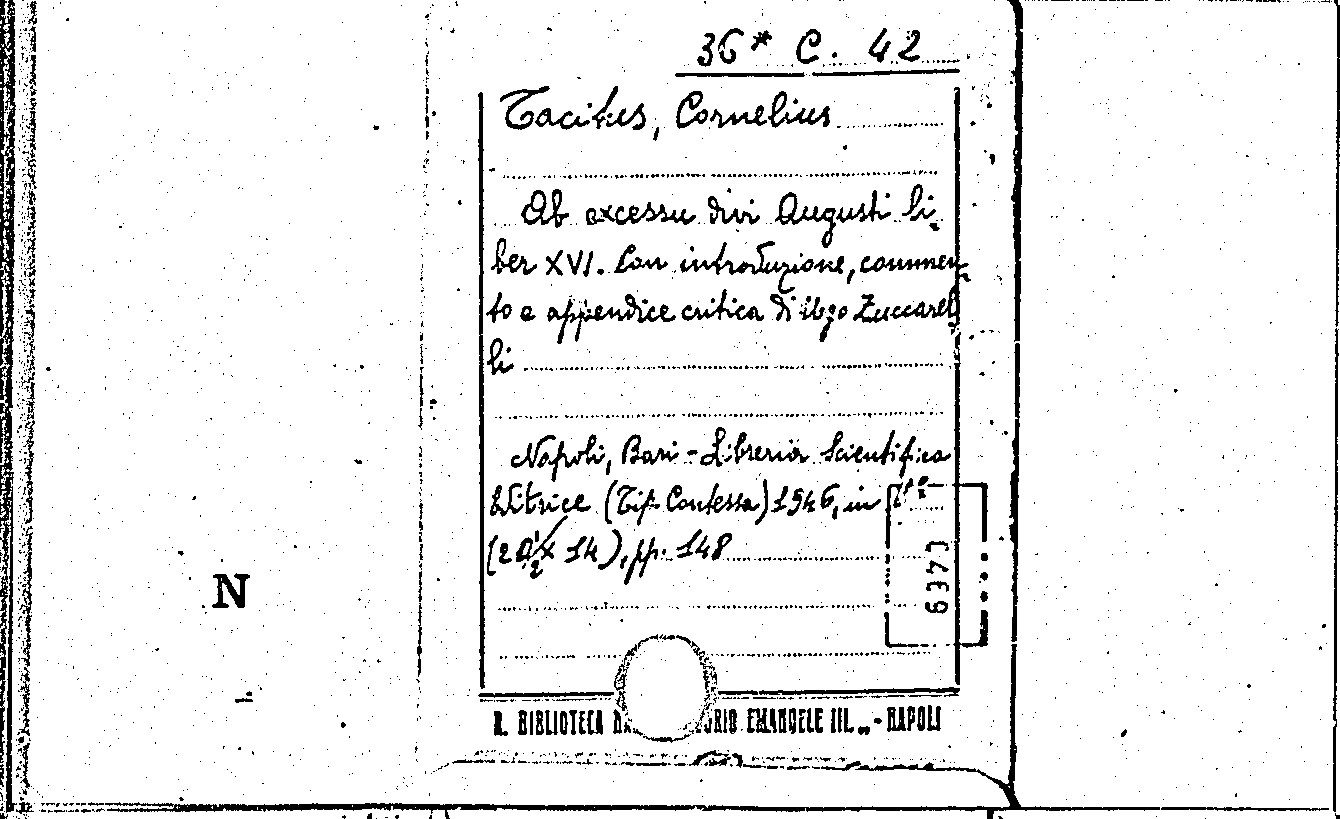 36* C. 42
Tacitus, Cornelius
Ab excessu divi Augusti li-
ber XVI. Con introduzione, commen-
to e appendice critica di Ugo Zuccarel-
li
Napoli, Bari - Libreria Scientifica
Editrice (Tip. Contessa) 1946, in
(20 1/2 x 14), pp. 148
N
R. BIBLIOTECA EMANUELE III. „ - NAPOLI